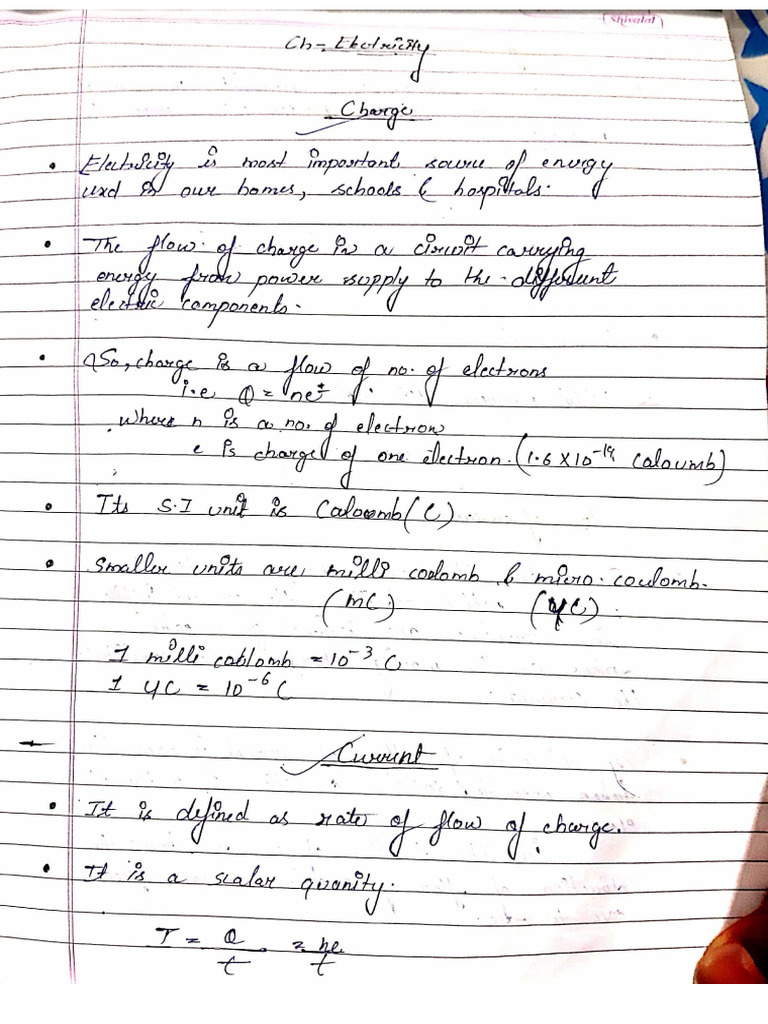 (Shivalal)
Ch- Electricity
Charge
• Electricity is most important source of energy
uxd in our homes, schools & hospitals.
• The flow of charge in a circuit carrying
energy from power supply to the different
electric components.
• So, charge is a flow of no. of electrons
i.e Q = ne±
where n is a no. of electron
e is charge of one electron. (1.6 X 10⁻¹⁹ Caloumb)
• Its S.I unit is Calocomb (C).
• Smaller units are milli coolomb & micro. coulomb.
(mC) (μC).
1 milli coblomb = 10⁻³ C
1 μC = 10⁻⁶ C
Current
• It is defined as rate of flow of charge.
• It is a scalar quanity.
I = Q/t = ne/t